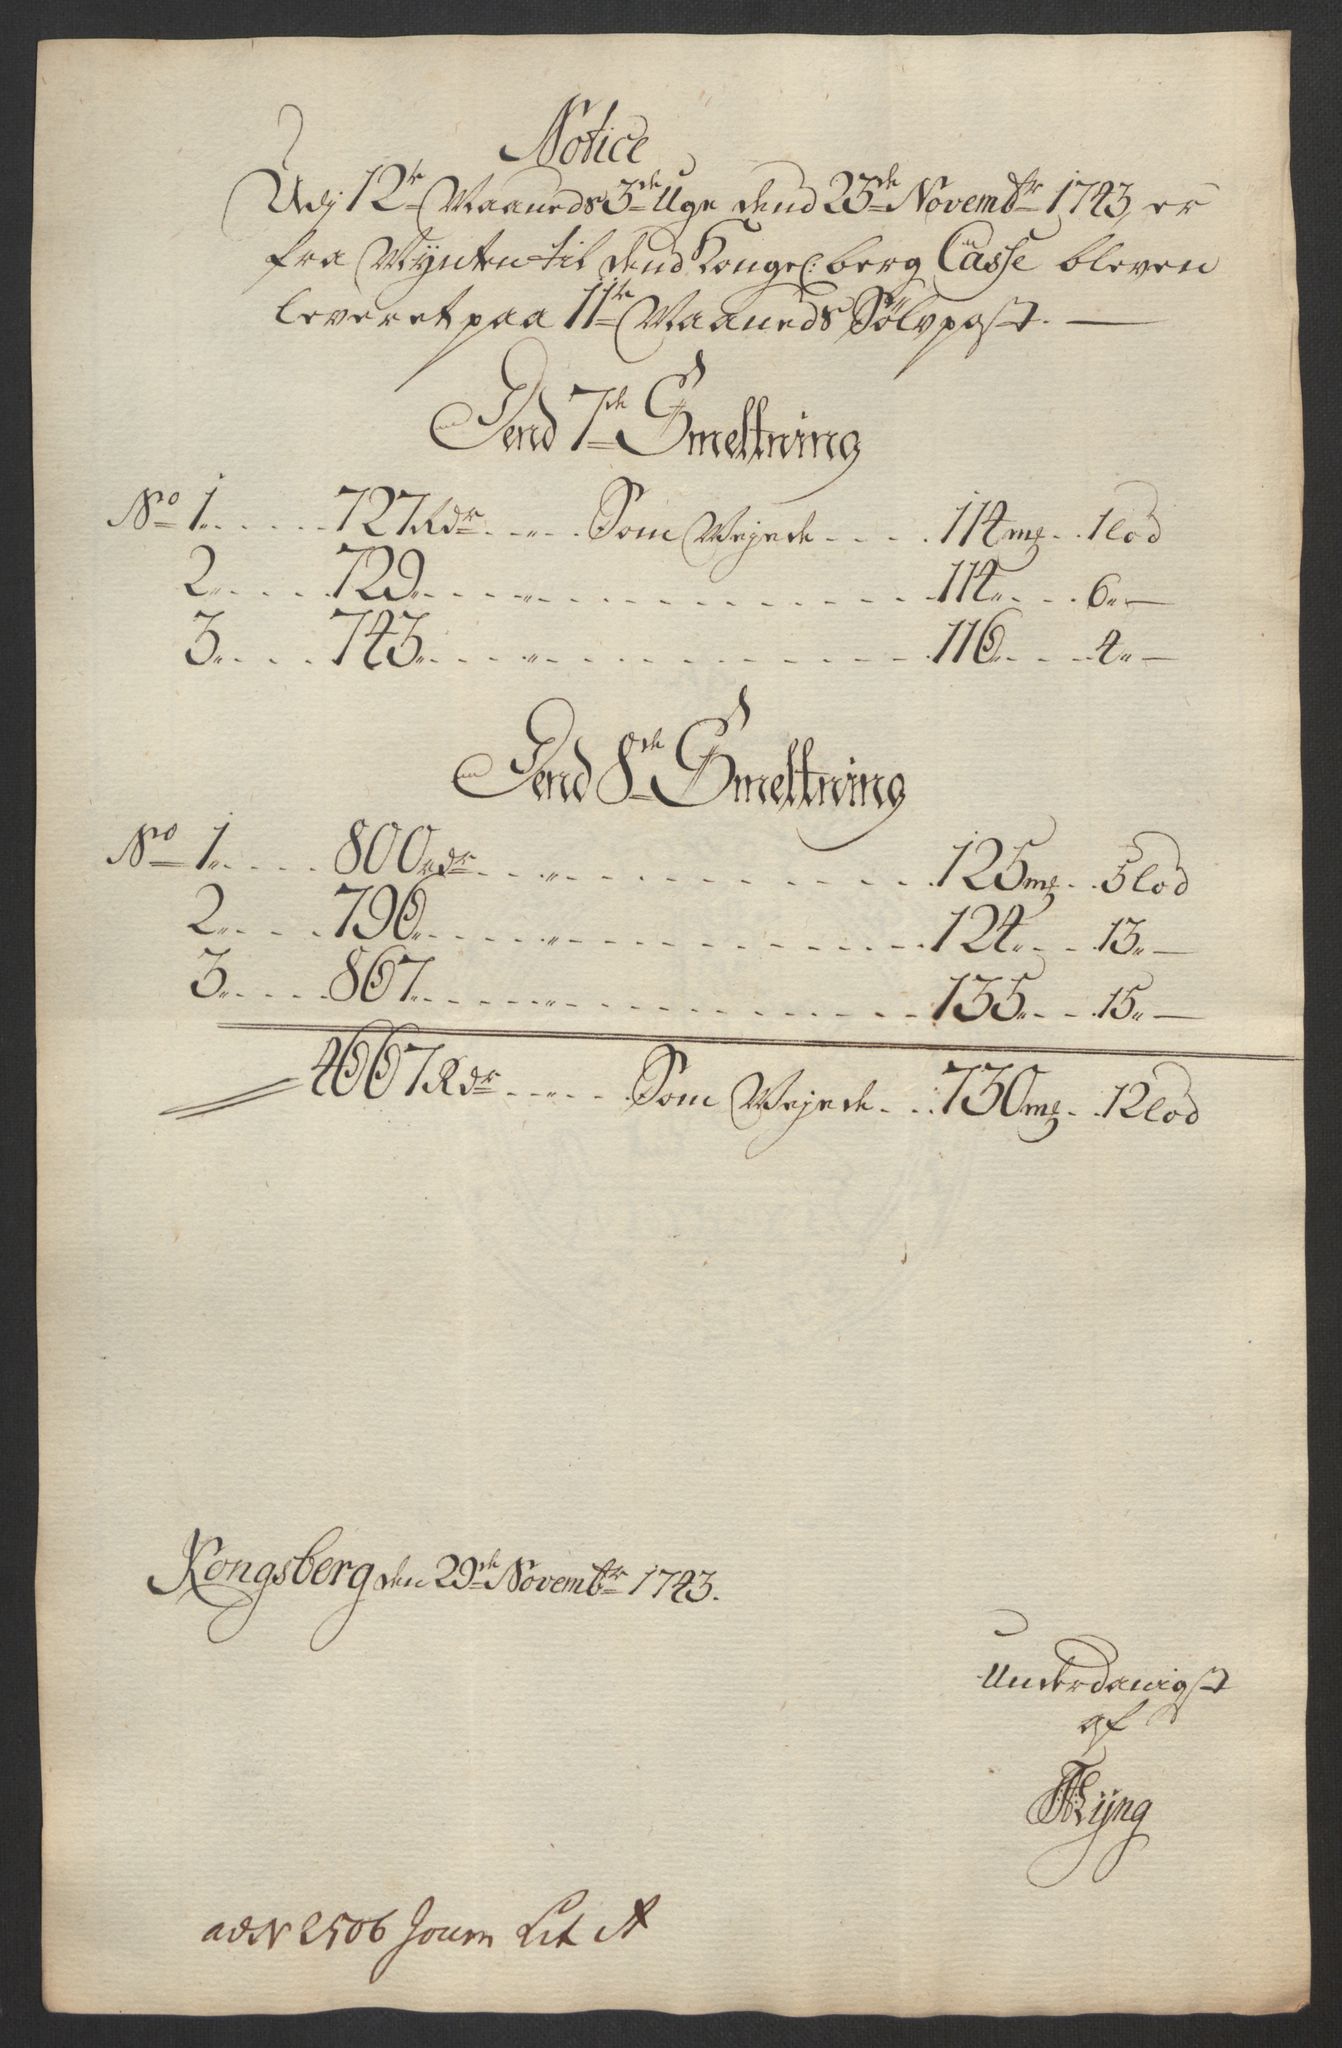 Notice
Udj 12te Maaneds 3de Uge dend 23de Novembr 1743, er
fra Mÿnten til dend Kongel: berg Casse bleven
leveret paa 11te Maaneds Sölvpost. —
Dend 7de Smeltning
No 1. . . . . 727 Rdr . . „ . . Som Vejede . . . . 114 mk . . 1 lod
2. . . . . 729. . . . . „ . . . . . 114„ . . . 6„ —
3. . . . . 743. . . . . „ . . . . . 116. . . . 4„ —
Dend 8de Smeltning
No 1. . . . . 800 rdr . . . „ . . . . . 125 mk . . 5 lod
2. . . . . 796. . . . . „ . . . . . 124„ . . . 13„ —
3. . . . . 867. . . . . „ . . . . . 135„ . . . 15„ —
4667 Rdr . . „ . . . Som Vejede . . . 730 mk . . 12 lod
Kongsberg den 29de Novembr 1743.
Underdanigst
af
TLÿng
ad N 2506 Journ Lit A